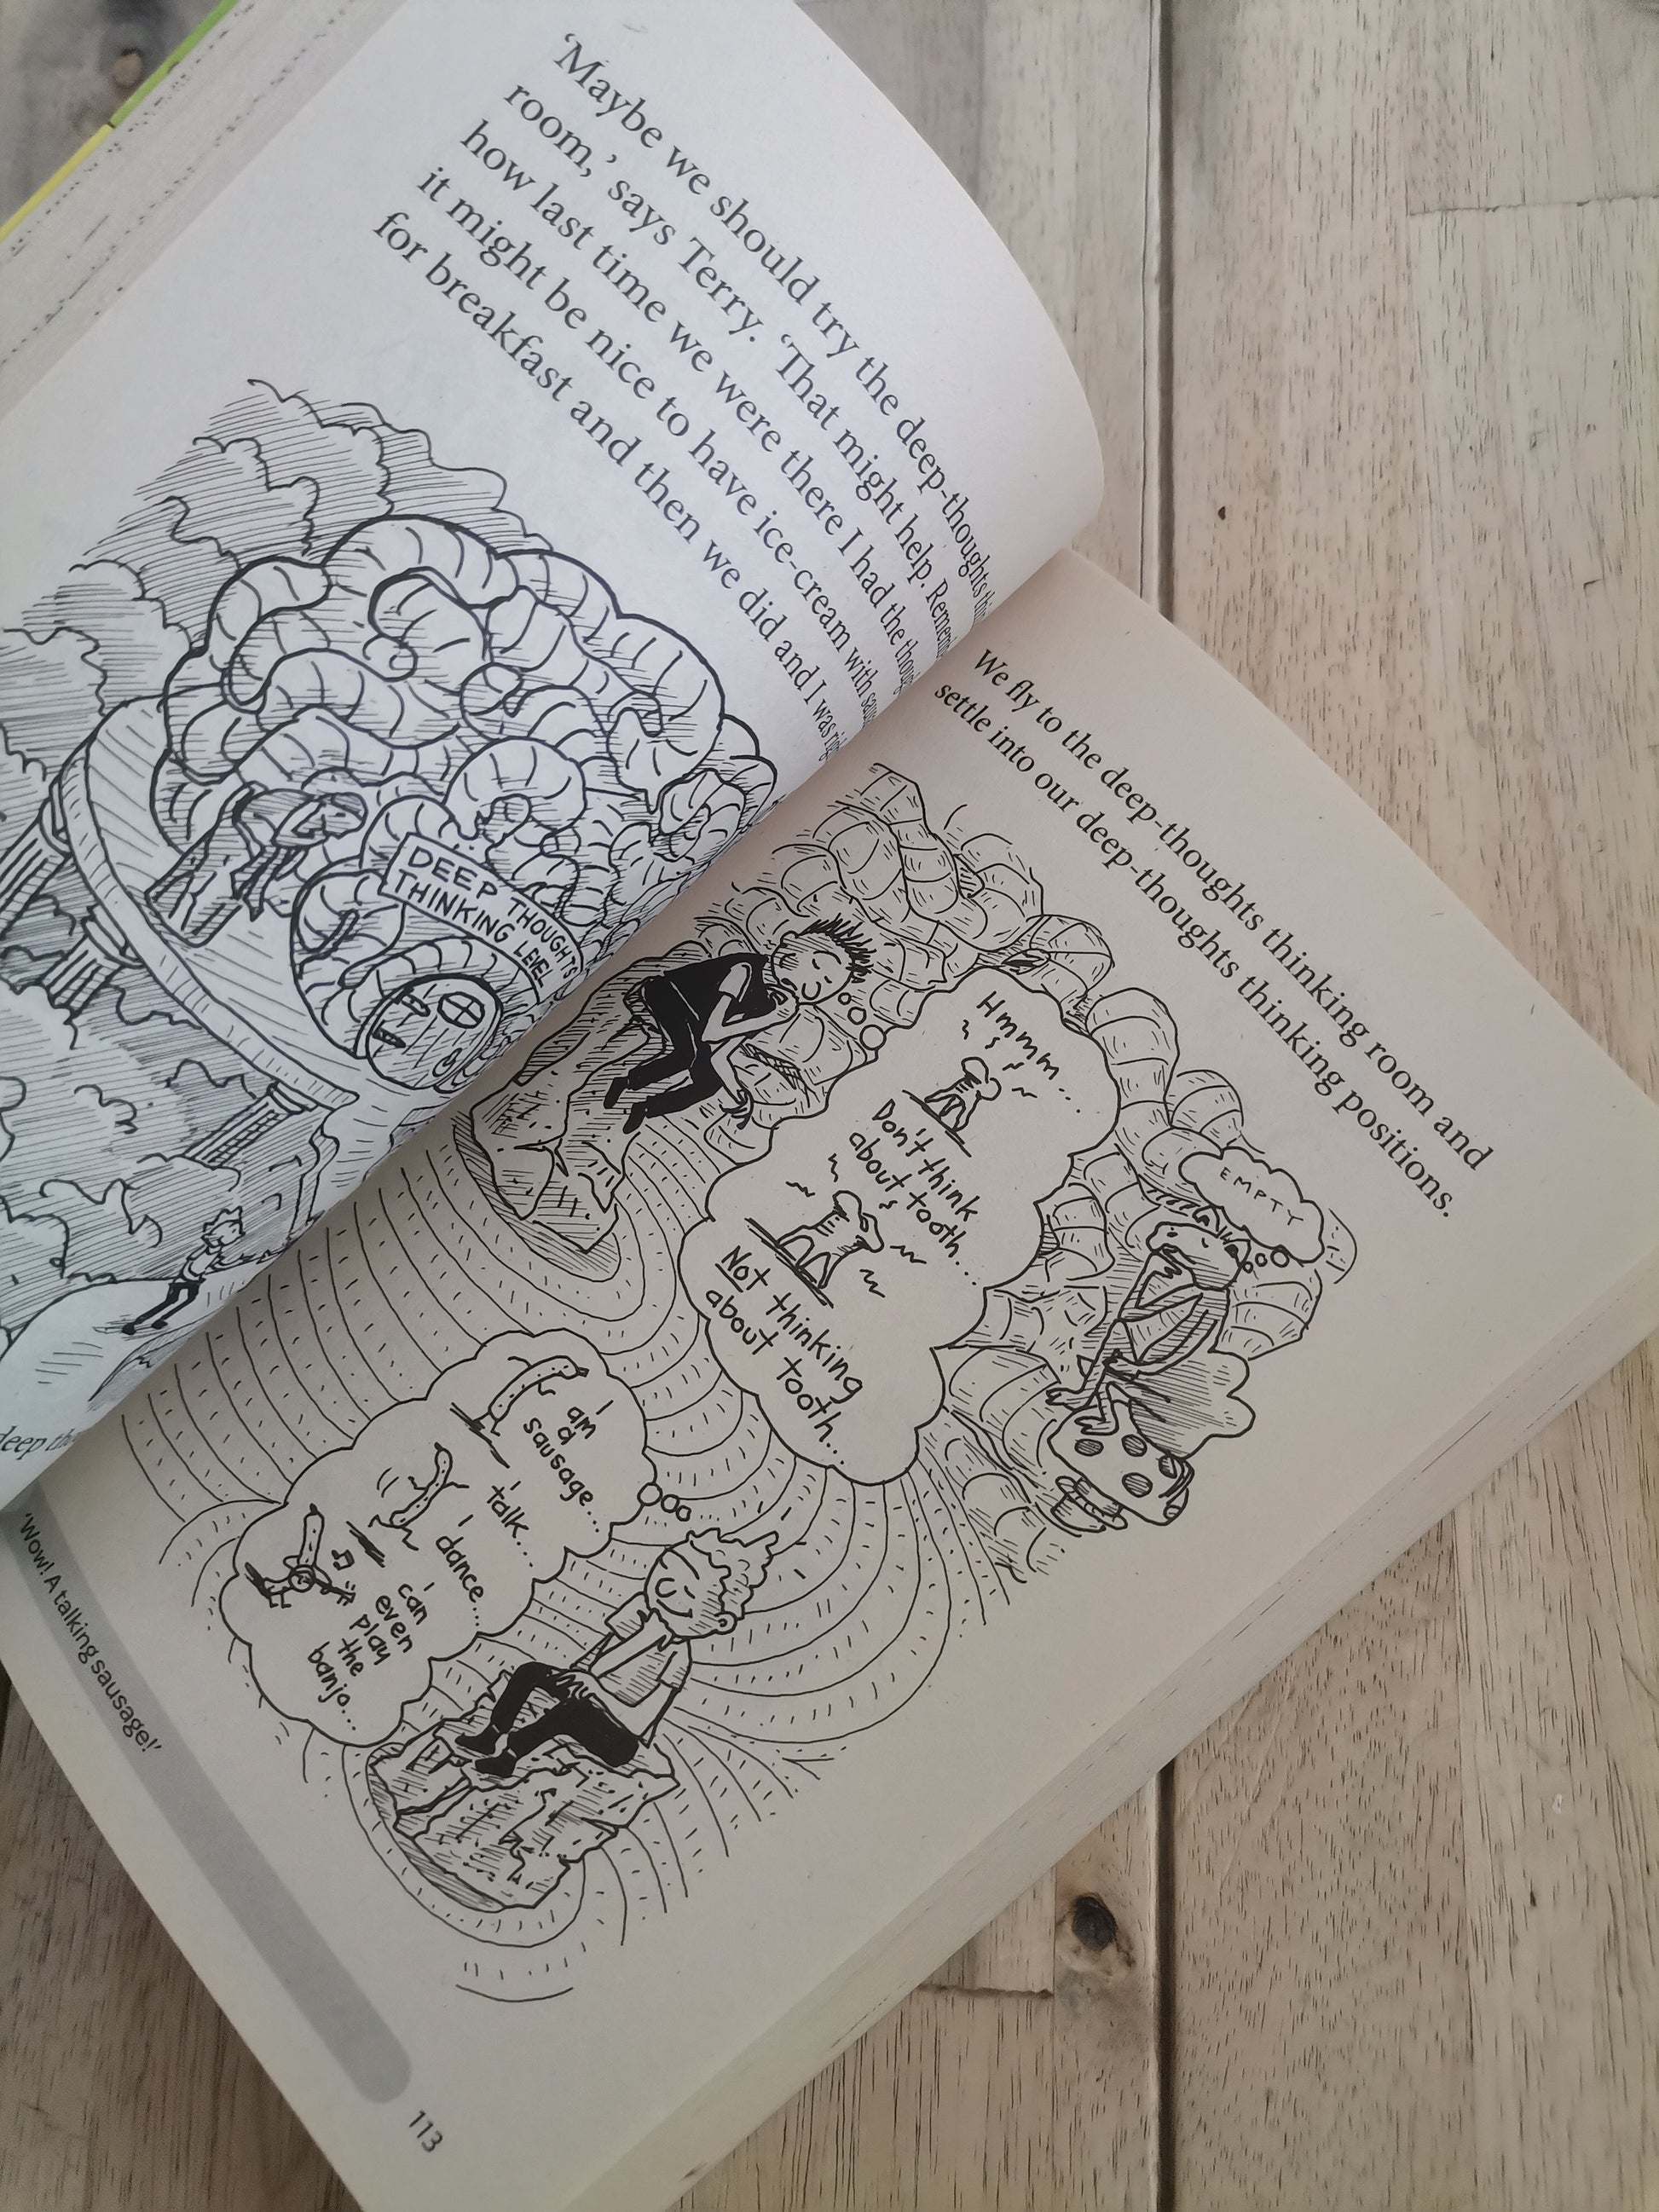 'Maybe we should try the deep-thoughts
room,' says Terry. 'That might help.
how last time we were there I had the
it might be nice to have ice-cream with
for breakfast and then we did and I was
DEEP THOUGHTS
THINKING LEVEL
deep
We fly to the deep-thoughts thinking room and
settle into our deep-thoughts thinking positions.
Hmmm...
Don't think
about tooth...
Not thinking
about tooth...
EMPTY
I
am
a
sausage...
I
talk....
I
dance....
I
can
even
play
the
banjo...
'Wow! A talking sausage!'
113